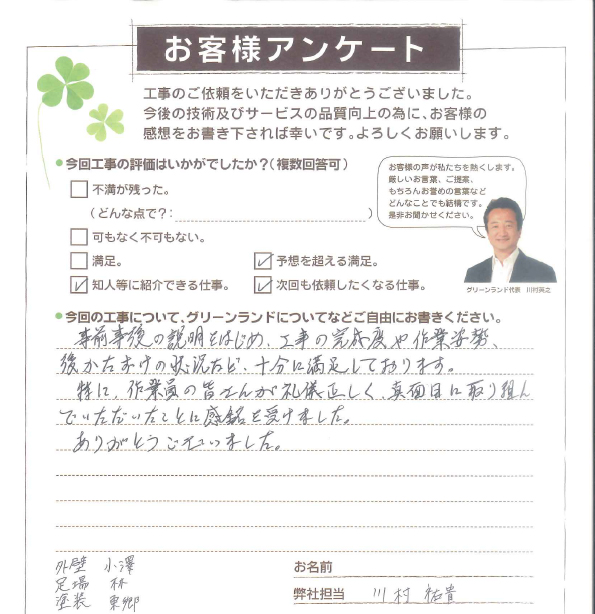 お客様アンケート
工事のご依頼をいただきありがとうございました。
今後の技術及びサービスの品質向上の為に、お客様の
感想をお書き下されば幸いです。よろしくお願いします。
今回工事の評価はいかがでしたか?(複数回答可)
不満が残った。
(どんな点で?:                    )
可もなく不可もない。
満足。
予想を超える満足。
知人等に紹介できる仕事。
次回も依頼したくなる仕事。
お客様の声が私たちを熱くします。
厳しいお言葉、ご提案、
もちろんお誉めの言葉など
どんなことでも結構です。
是非お聞かせください。
グリーンランド代表 川村英之
今回の工事について、グリーンランドについてなどご自由にお書きください。
事前事後の説明をはじめ、工事の完成度や作業姿勢、
後かたずけの状況など、十分に満足しております。
特に、作業員の皆さんが礼儀正しく、真面目に取り組ん
でいただいたことに感銘を受けました。
ありがとうございました。
外壁 小澤
足場 林
塗装 東郷
お名前
弊社担当 川村 祐貴